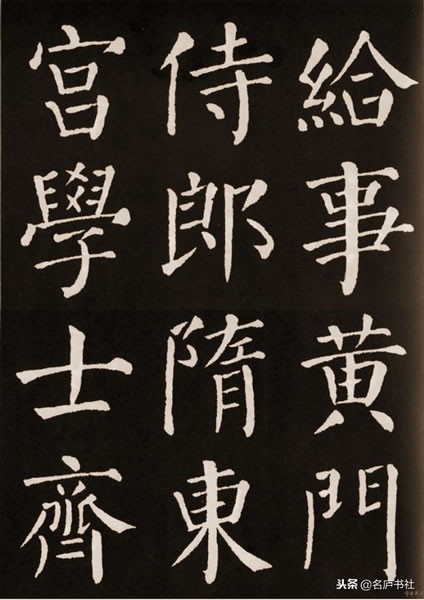 給事黄門
侍郎隋東
宮學士齊
头条 @名庐书社